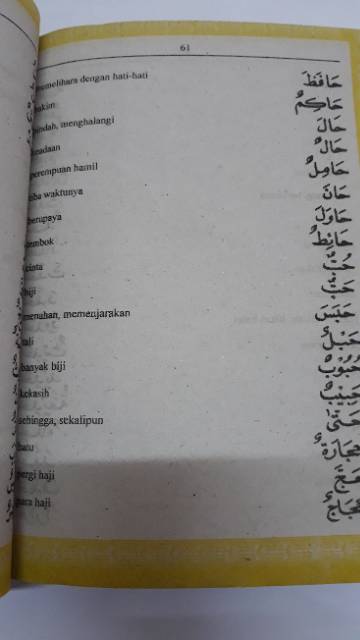 61
memelihara dengan hati-hati حَافَظَ
hakim حَاكِمٌ
pindah, menghalangi حَالَ
keadaan حَالٌ
perempuan hamil حَامِلٌ
tiba waktunya حَانَ
berupaya حَاوَلَ
tembok حَائِطٌ
cinta حُبٌّ
biji حَبٌّ
menahan, memenjarakan حَبَسَ
tali حَبْلٌ
banyak biji حُبُوْبٌ
kekasih حَبِيْبٌ
sehingga, sekalipun حَتَّى
batu حِجَارَةٌ
pergi haji حَجَّ
para haji حُجَّاجٌ